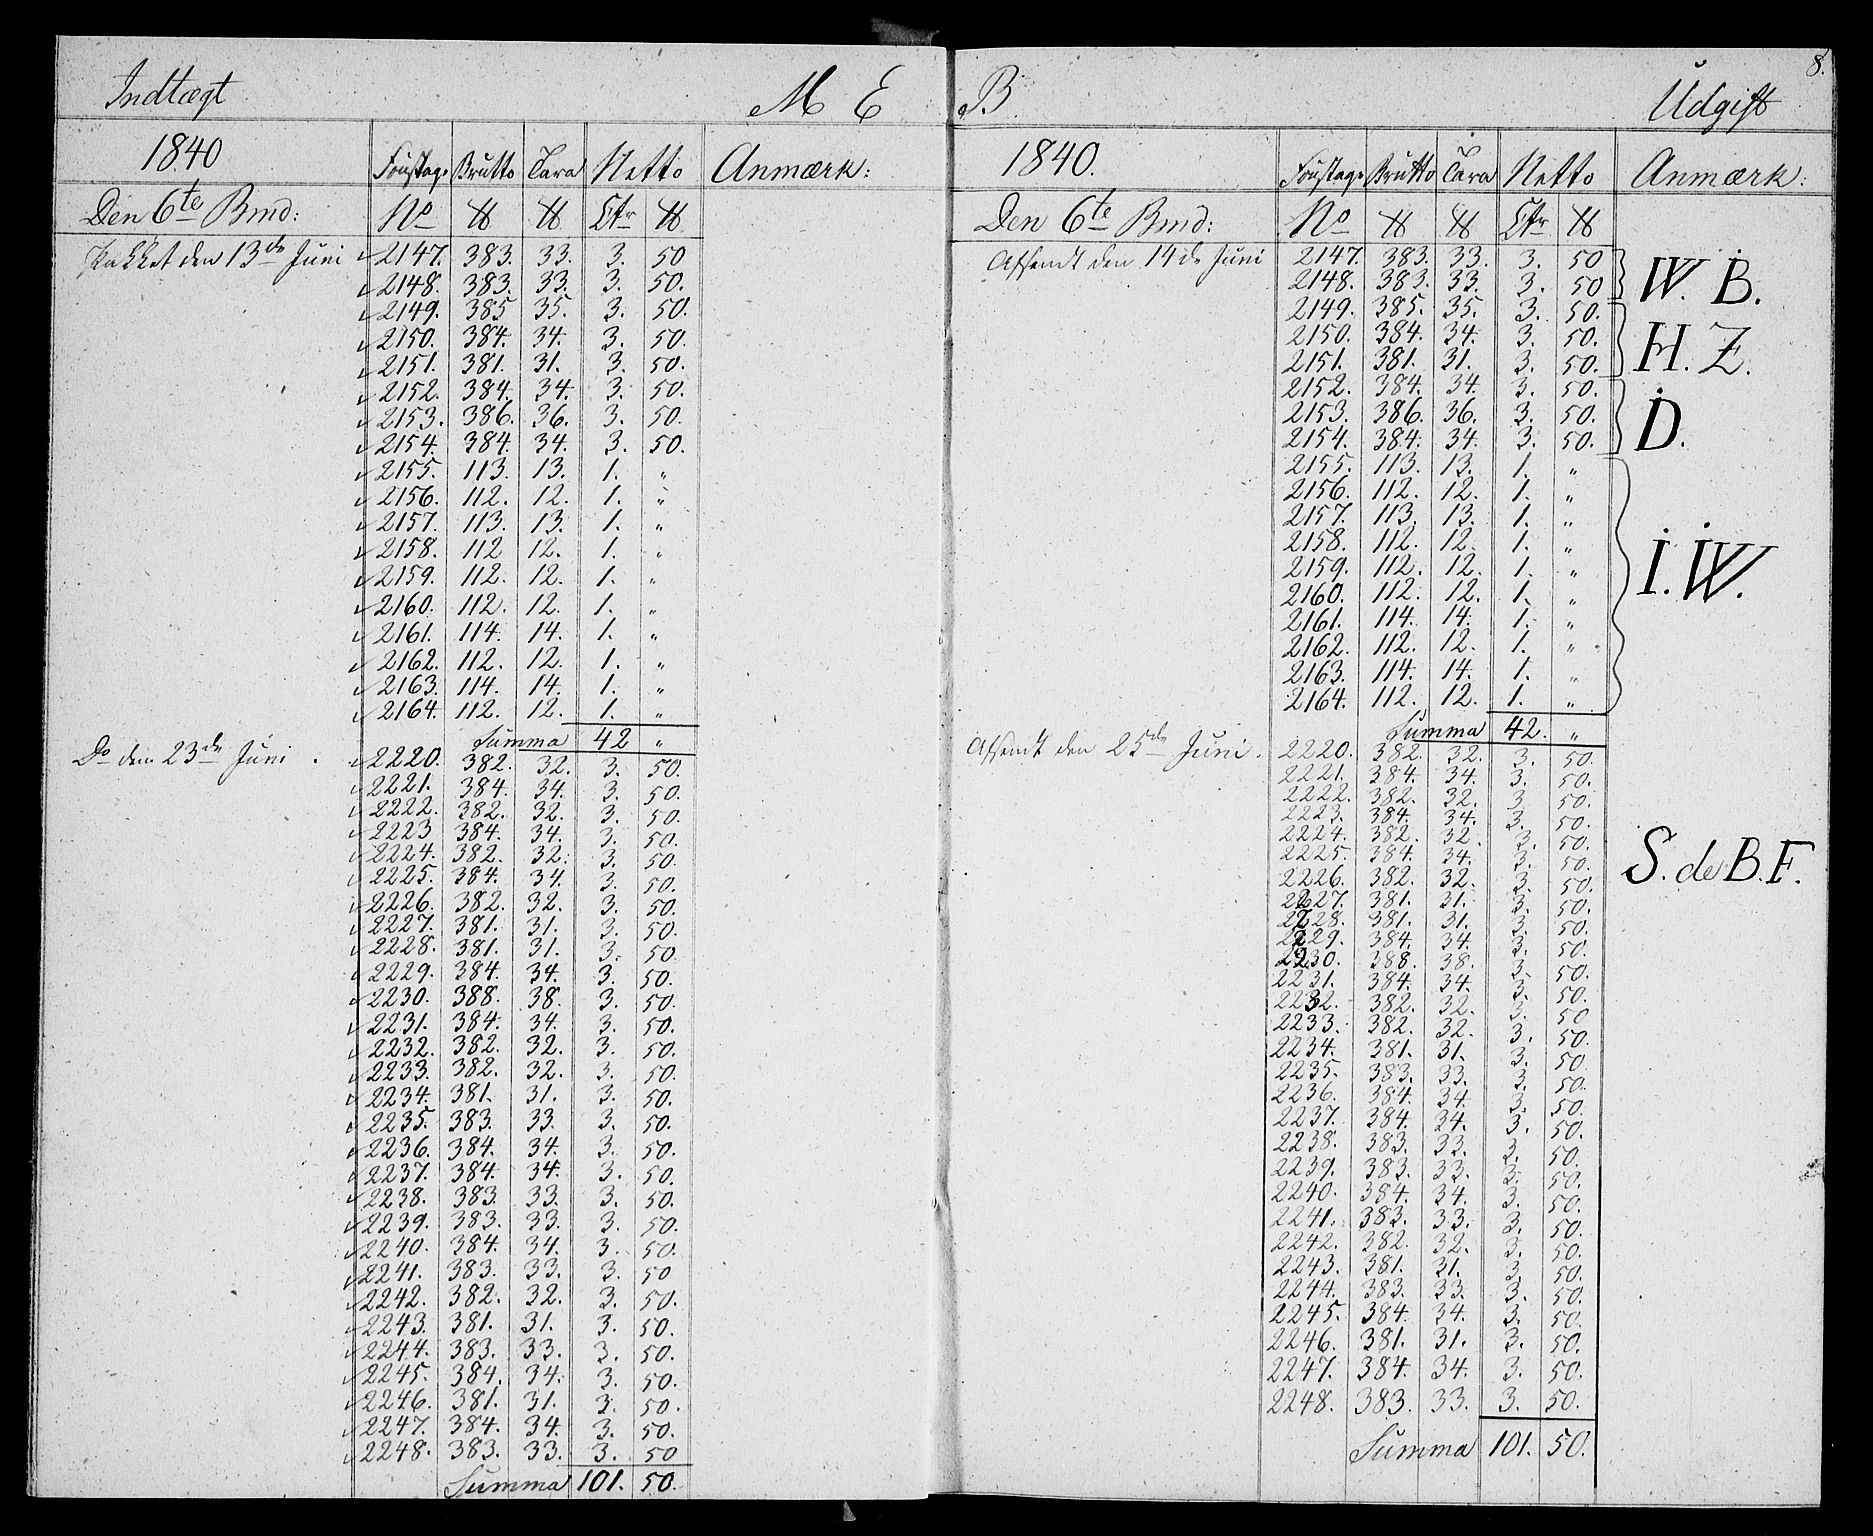 Indtægt M E
1840 Fustage Brutto Tara Netto Anmærk:
Den 6te Bmd: No ℔ ℔ Ctr ℔
Pakket den 13de Juni 2147. 383. 33. 3. 50
2148. 383. 33. 3. 50.
2149. 385 35. 3. 50.
2150. 384. 34. 3. 50.
2151. 381. 31. 3. 50.
2152. 384. 34. 3. 50.
2153. 386. 36. 3. 50.
2154. 384. 34. 3. 50.
2155. 113. 13. 1. "
2156. 112. 12. 1. "
2157. 113. 13. 1. "
2158. 112 12. 1. "
2159. 112. 12. 1. "
2160. 112. 12. 1. "
2161. 114. 14. 1. "
2162. 112. 12. 1. "
2163. 114. 14. 1. "
2164. 112. 12. 1. "
Summa 42 "
Do den 23de Juni . 2220. 382. 32. 3. 50.
2221. 384. 34. 3. 50.
2222. 382. 32. 3. 50.
2223 384. 34. 3. 50.
2224. 382. 32. 3. 50.
2225. 384. 34. 3. 50.
2226. 382. 32. 3. 50.
2227. 381. 31. 3. 50.
2228. 381. 31. 3. 50.
2229. 384. 34. 3. 50.
2230. 388. 38. 3. 50.
2231. 384. 34. 3. 50.
2232. 382. 32. 3. 50.
2233. 382. 32. 3. 50.
2234. 381. 31. 3. 50.
2235. 383. 33. 3. 50.
2236. 384. 34. 3. 50.
2237. 384. 34. 3. 50.
2238. 383. 33. 3. 50.
2239. 383. 33. 3. 50.
2240. 384. 34. 3. 50.
2241. 383. 33. 3. 50
2242. 382. 32. 3. 50.
2243. 381. 31. 3. 50.
2244. 383. 33. 3. 50.
2245. 384. 34. 3. 50.
2246. 381. 31. 3. 50.
2247. 384. 34. 3. 50.
2248. 383. 33. 3. 50
Summa 101. 50.
8.
B. Udgift
1840. Fustage Brutto Tara Netto Anmærk:
Den 6te Bmd: No ℔ ℔ Ctr ℔
Afsendt den 14de Juni 2147. 383. 33. 3. 50
2148. 383. 33. 3. 50 W. B.
2149. 385. 35. 3. 50.
2150. 384. 34. 3. 50. H. Z.
2151. 381. 31. 3. 50.
2152. 384. 34. 3. 50.
2153. 386. 36. 3. 50. D.
2154. 384. 34. 3. 50.
2155. 113. 13. 1. "
2156. 112. 12. 1. "
2157. 113. 13. 1. "
2158. 112. 12. 1. "
2159. 112. 12. 1. " I. W.
2160. 112. 12. 1. "
2161. 114. 14. 1. "
2162. 112. 12. 1. "
2163. 114. 14. 1. "
2164. 112. 12. 1. "
Summa 42. "
Afsendt den 25de Juni. 2220. 382. 32. 3. 50.
2221. 384. 34. 3. 50.
2222. 382. 32. 3 50.
2223. 384. 34. 3. 50.
2224. 382. 32. 3. 50.
2225. 384. 34. 3. 50. S. de B. F.
2226. 382. 32. 3. 50.
2227. 381. 31. 3. 50.
2228. 381. 31. 3. 50.
2229. 384. 34. 3. 50.
2230. 388. 38. 3. 50.
2231. 384. 34. 3. 50.
2232. 382. 32. 3. 50
2233. 382. 32. 3. 50.
2234. 381. 31. 3. 50.
2235. 383. 33. 3. 50.
2236. 384. 34. 3. 50.
2237. 384. 34. 3. 50.
2238. 383. 33. 3. 50.
2239. 383. 33. 3. 50.
2240. 384. 34. 3. 50.
2241. 383. 33. 3. 50.
2242. 382. 32. 3. 50.
2243. 381. 31. 3. 50.
2244. 383. 33. 3. 50.
2245. 384. 34. 3. 50.
2246. 381. 31. 3. 50.
2247. 384. 34. 3. 50.
2248. 383. 33. 3. 50.
Summa 101. 50.